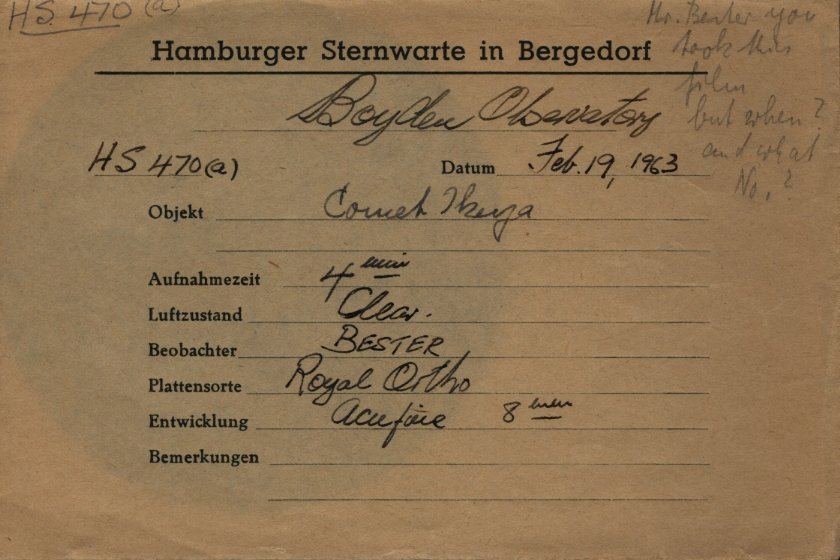 HS 470 (a)
Mr. Bester you
took this
film
but when?
and what
No.?
Hamburger Sternwarte in Bergedorf
Boyden Observatory
HS 470(a) Datum Feb. 19, 1963
Objekt Comet Ikeya
Aufnahmezeit 4 min
Luftzustand Clear.
Beobachter BESTER
Plattensorte Royal Ortho
Entwicklung Acufine 8 min
Bemerkungen